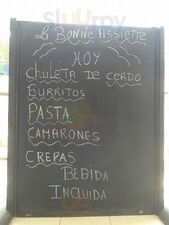 La Bonne Assiette
HOY
Chuleta de cerdo
Burritos
Pasta
Camarones
Crepas
Bebida
Incluida